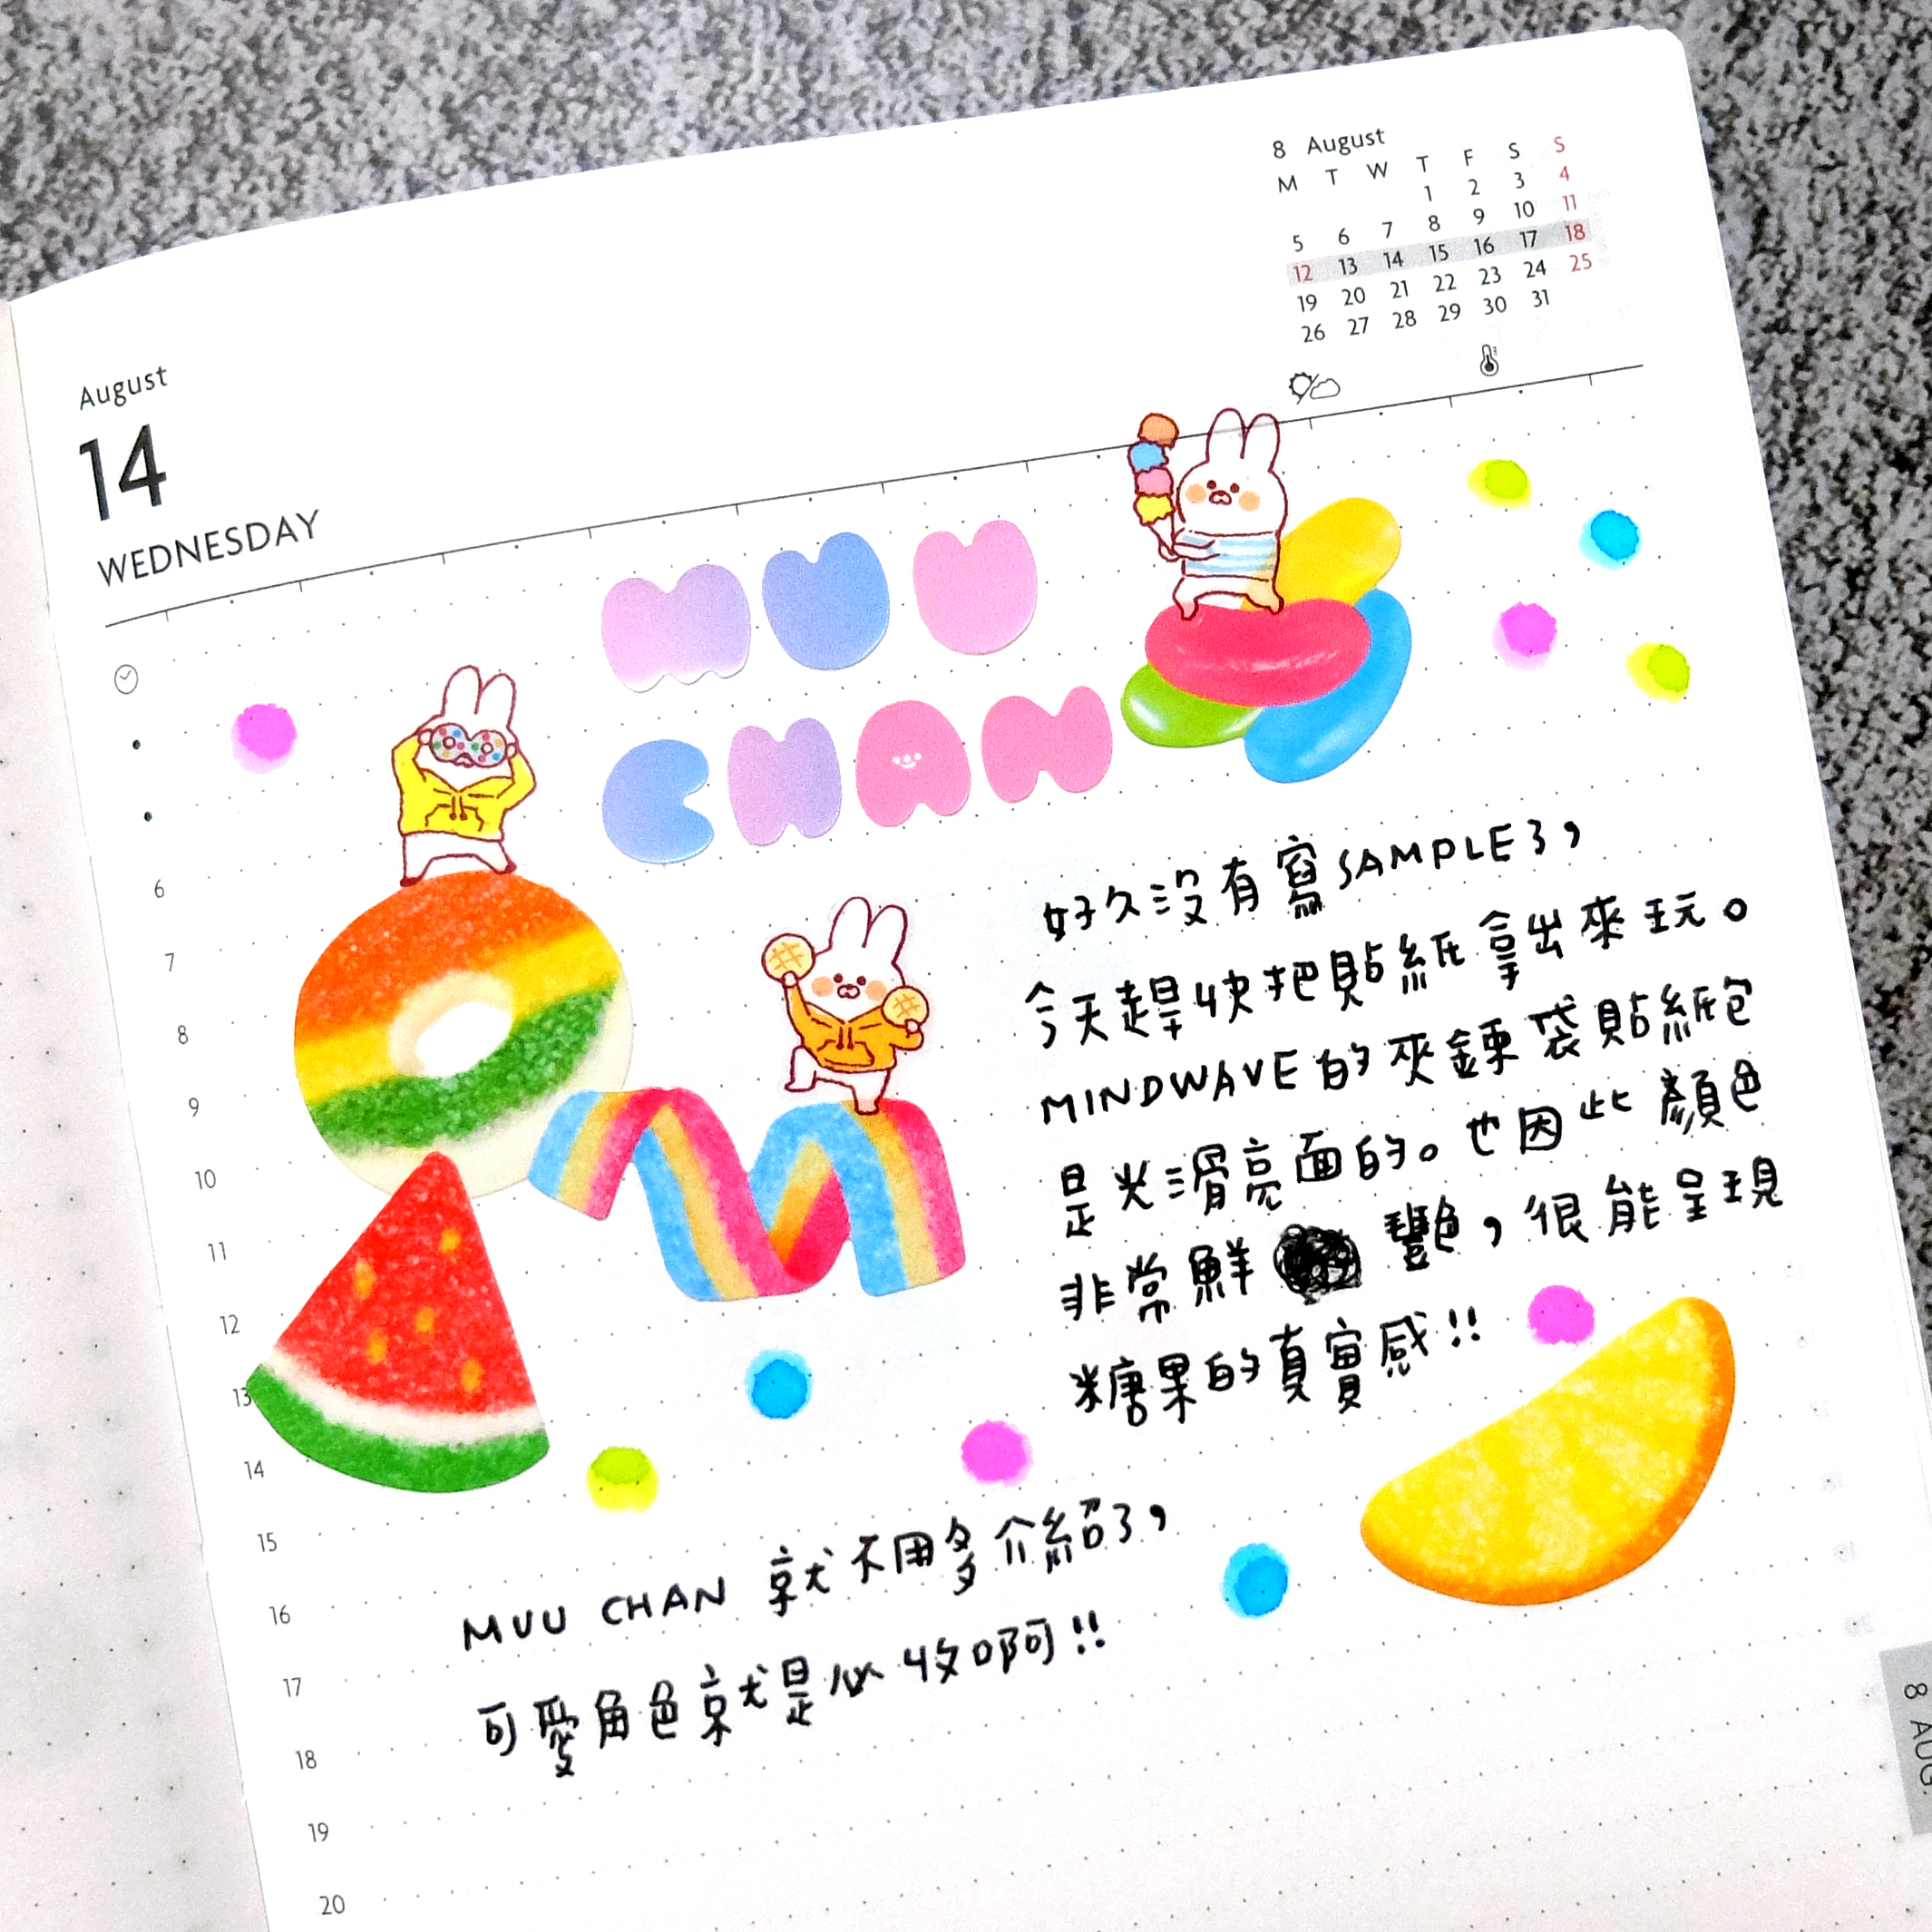 8 August
M T W T F S S
1 2 3 4
5 6 7 8 9 10 11
12 13 14 15 16 17 18
19 20 21 22 23 24 25
26 27 28 29 30 31
August
14
WEDNESDAY
MUU
CHAN
好久沒有寫SAMPLE了，
今天趕快把貼紙拿出來玩。
MINDWAVE的夾鍊袋貼紙包
是光滑亮面的。也因此顏色
非常鮮豔，很能呈現
糖果的真實感!!
MUU CHAN 就不用多介紹了，
可愛角色就是必收啊!!
6
7
8
9
10
11
12
13
14
15
16
17
18
19
20
8 AUG.